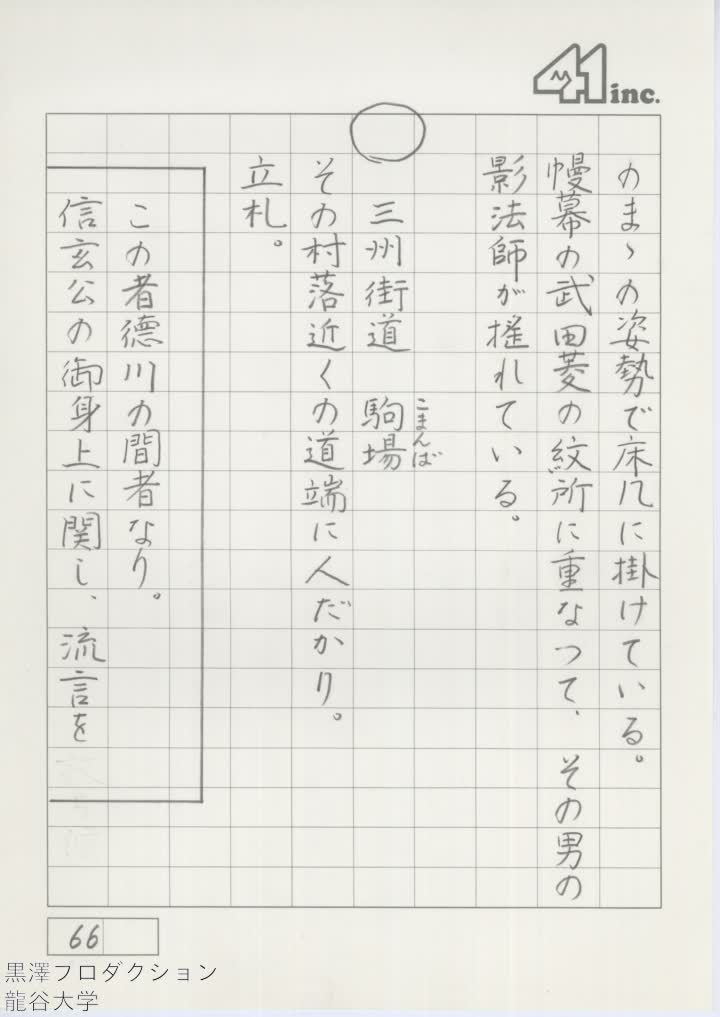 41 inc.
のまゝの姿勢で床几に掛けている。
幔幕の武田菱の紋所に重なつて、その男の
影法師が搖れている。
三州街道　駒場
こまんば
その村落近くの道端に人だかり。
立札。
この者徳川の間者なり。
信玄公の御身上に関し、流言を
66
黒澤フロダクション
龍谷大学